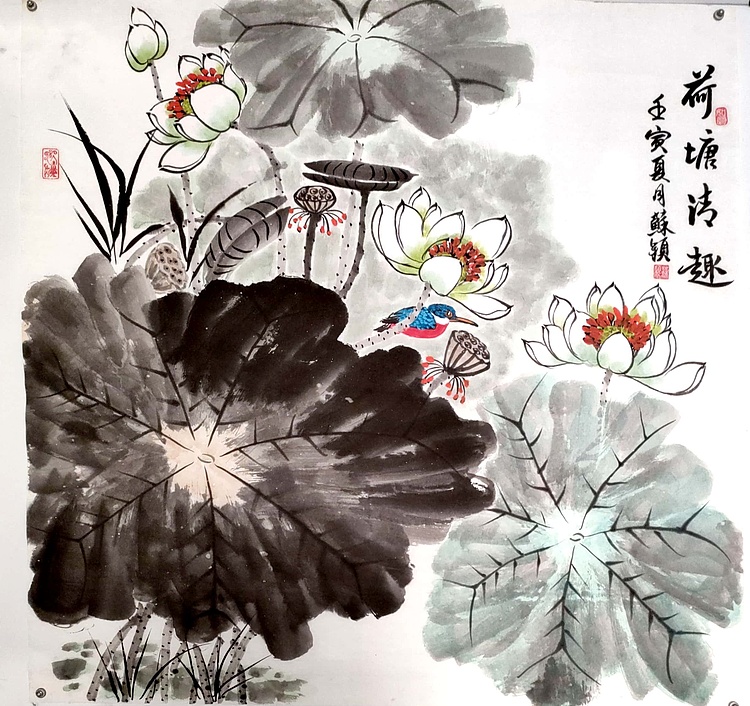 荷塘清趣
壬寅夏月蘇穎